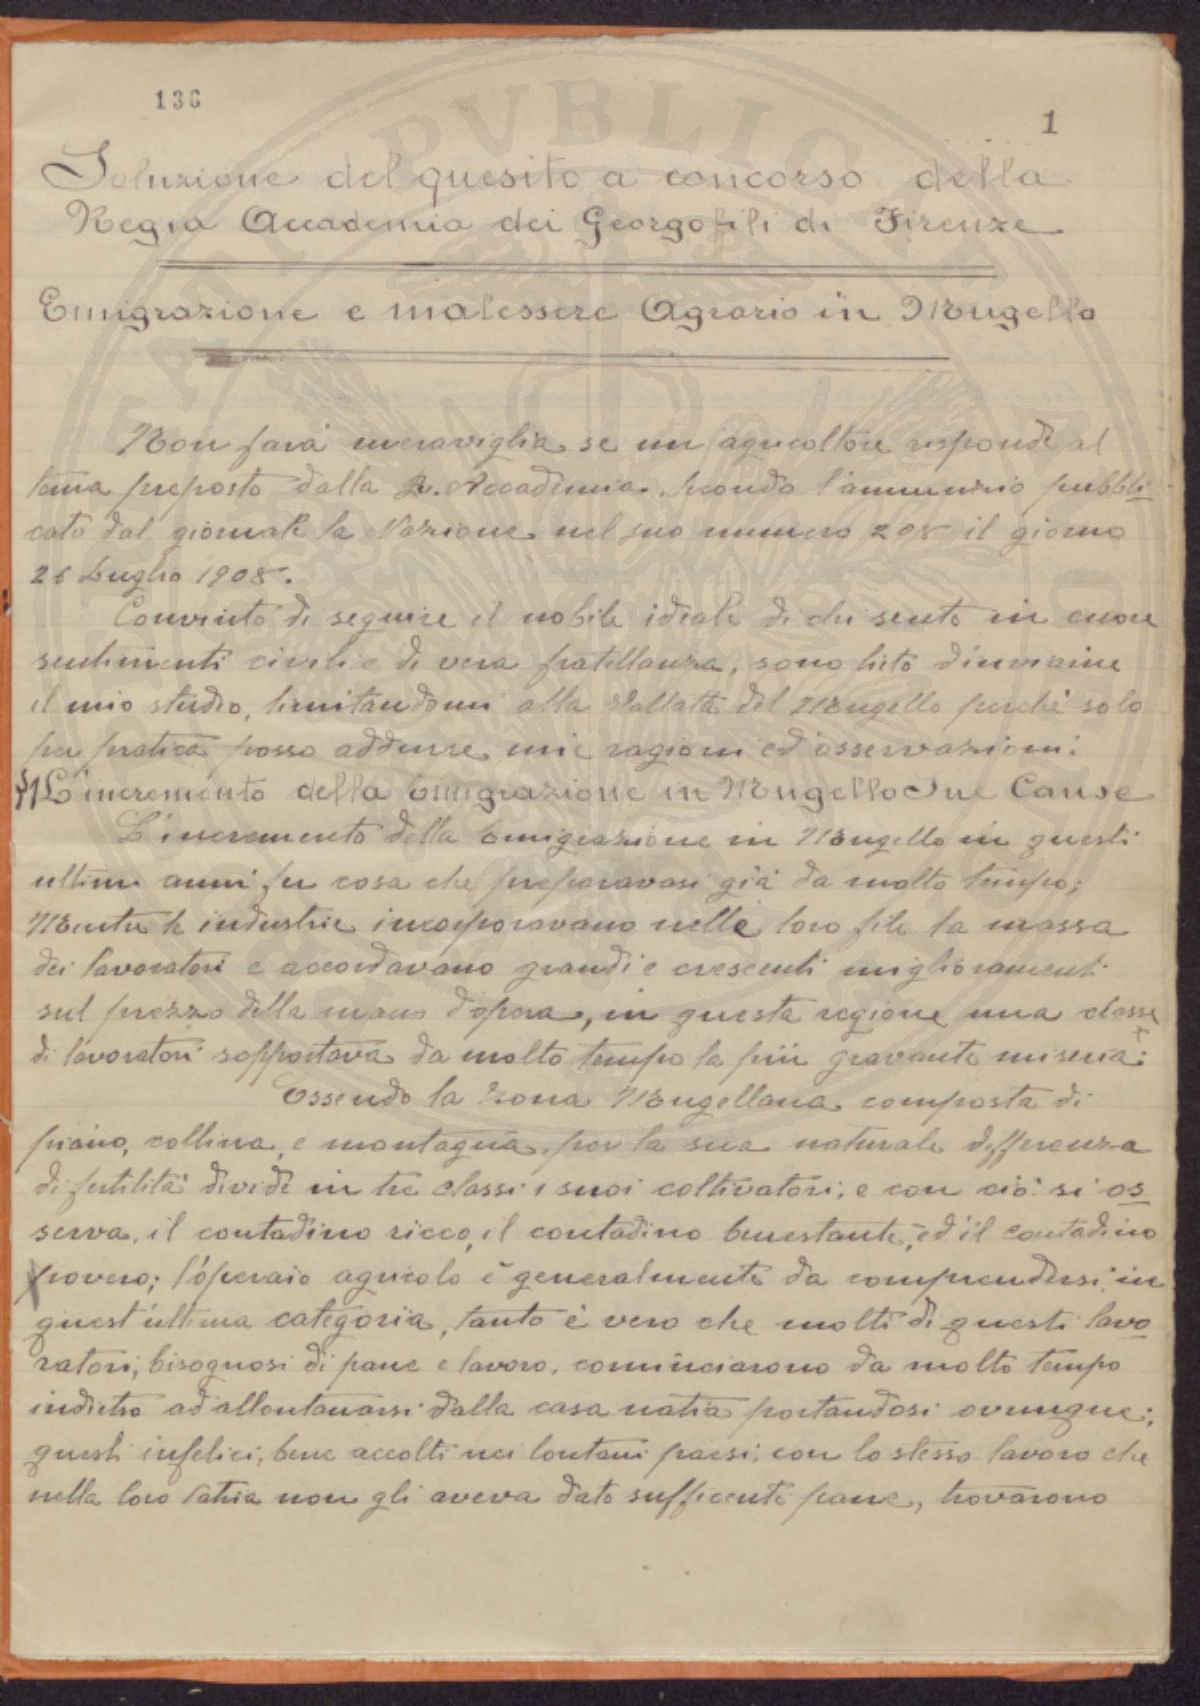 136
1
Soluzione del quesito a concorso della
Regia Accademia dei Georgofili di Firenze
Emigrazione e malessere Agrario in Mugello
Non farà meraviglia se un agricoltore risponde al
tema preposto dalla R. Accademia, secondo l'annunzio pubbli
cato dal giornale la Nazione nel suo numero 208 il giorno
26 Luglio 1908.
Convinto di seguire il nobile ideale di chi sente in cuore
sentimenti civili e di vera fratellanza, sono lieto d'inviare
il mio studio, limitandomi alla Vallata del Mugello perchè solo
per pratica posso addurre mie ragioni ed osservazioni:
§1 L'incremento della Emigrazione in Mugello Sue Cause
L'incremento della Emigrazione in Mugello in questi
ultimi anni fu cosa che preparavasi già da molto tempo;
Mentre le industrie incorporavano nelle loro file la massa
dei lavoratori e accordavano grandi e crescenti miglioramenti
sul prezzo della mano d'opera, in questa regione una classe
di lavoratori sopportava da molto tempo la più gravante miseria:
Essendo la zona Mugellana composta di
piano, collina, e montagna, per la sua naturale differenza
di fertilità divide in tre classi i suoi coltivatori; e con ciò si os
serva, il contadino ricco, il contadino benestante, ed il contadino
povero; l'operaio agricolo è generalmente da comprendersi in
quest'ultima categoria, tanto è vero che molti di questi lavo
ratori, bisognosi di pane e lavoro, cominciarono da molto tempo
indietro ad allontanarsi dalla casa natia portandosi ovunque;
questi infelici, bene accolti nei lontani paesi, con lo stesso lavoro che
nella loro Patria non gli aveva dato sufficente pane, trovarono